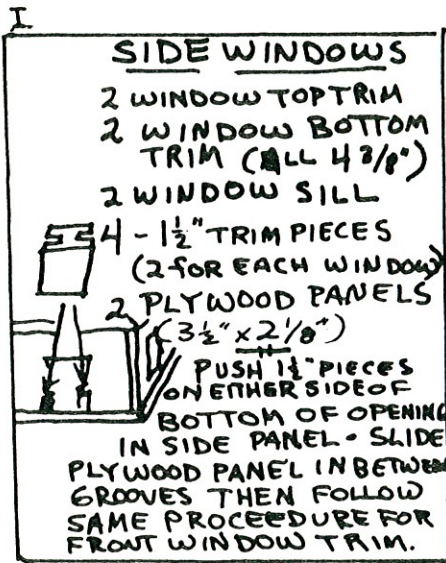 I
SIDE WINDOWS
2 WINDOW TOP TRIM
2 WINDOW BOTTOM
TRIM (ALL 4 3/8")
2 WINDOW SILL
4 - 1 1/2" TRIM PIECES
(2 FOR EACH WINDOW)
2 PLYWOOD PANELS
(3 1/2" x 2 1/8")
PUSH 1 1/2" PIECES
ON EITHER SIDE OF
BOTTOM OF OPENING
IN SIDE PANEL - SLIDE
PLYWOOD PANEL IN BETWEEN
GROOVES THEN FOLLOW
SAME PROCEEDURE FOR
FRONT WINDOW TRIM.